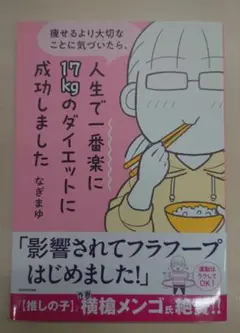 痩せるより大切な
ことに気づいたら、
人生で一番楽に
17kgのダイエットに
成功しました
なぎまゆ
「影響されてフラフープ
はじめました!」
運動は
ラクして
OK!
『【推しの子】』
横槍メンゴ氏絶賛!!